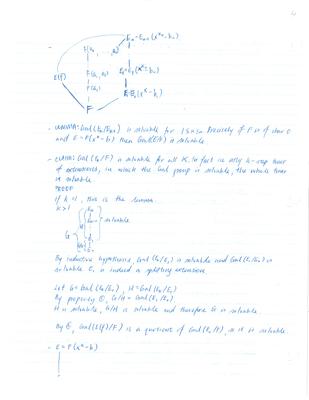 F(a₁, ..., aₙ)
Eₙ = Eₙ₋₁(xⁿ - bₙ)
E(f)
F(a₁, a₂)
F(a₁)
F
- LEMMA: Gal(
) is solvable for 1 ≤ k ≤ n. Precisely if F is of char 0
and E = F(xⁿ - b) then Gal(E/F) is solvable.
- CLAIM: Gal(Eₖ/F) is solvable for all k. In fact in any k-step tower
of extensions, in which the Gal group is solvable, the whole tower
is solvable.
PROOF
If k = 1, this is the lemma.
k > 1
G
solvable
By inductive hypothesis, Gal(Eₖ/E₁) is solvable and Gal(E₁/E₀) is
solvable. E₁ is indeed a splitting extension.
Let G = Gal(Eₖ/E₀), H = Gal(Eₖ/E₁)
By property ①, G/H = Gal(E₁/E₀)
H is solvable, G/H is solvable and therefore G is solvable.
By ①, Gal(E(f)/F) is a quotient of Gal(
), so it is solvable.
- E = F(xⁿ - b)